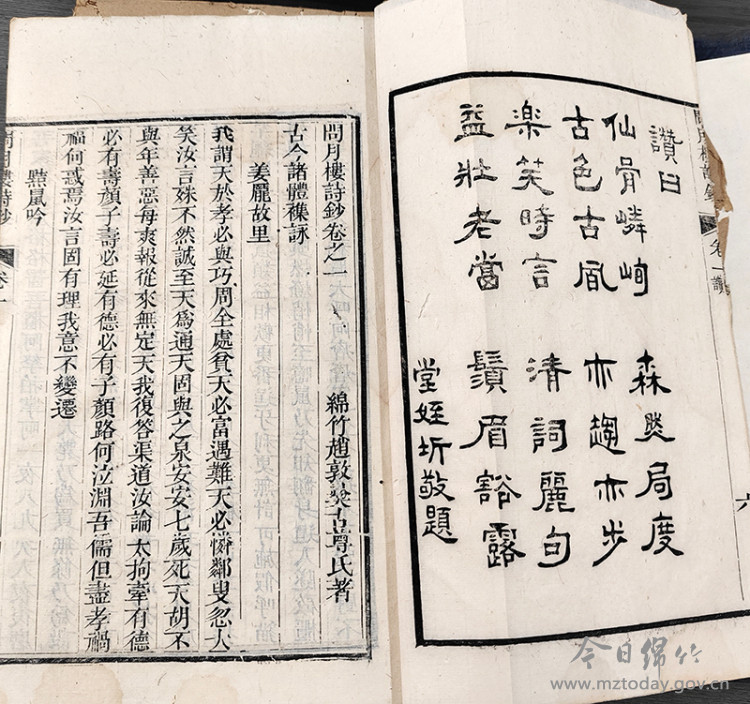 六
問月樓詩鈔 卷一讚
讚曰
仙骨嶙峋 森然局度
古色古風 亦趨亦步
楽笑時言 清詞麗句
益壯老當 鬚眉豁露
堂姪圻敬題
問月樓詩鈔卷之一 綿竹趙敦彝古尊氏著
古今諸體襍詠
姜龐故里
我謂天於孝必與巧周全處貧天必富遇難天必憐鄰叟忽大
笑汝言姝不然誠至天為通天固與之泉安安七歲死天胡不
與年善惡每爽報從來無定天我復答渠道汝論太拘牽有德
必有壽顏子壽必延有德必有子顏路何泣淵吾儒但盡孝禍
福何惑焉汝言固有理我意不變遷
黠鼠吟
問月樓詩鈔 卷一
今日绵竹
www.mztoday.gov.cn